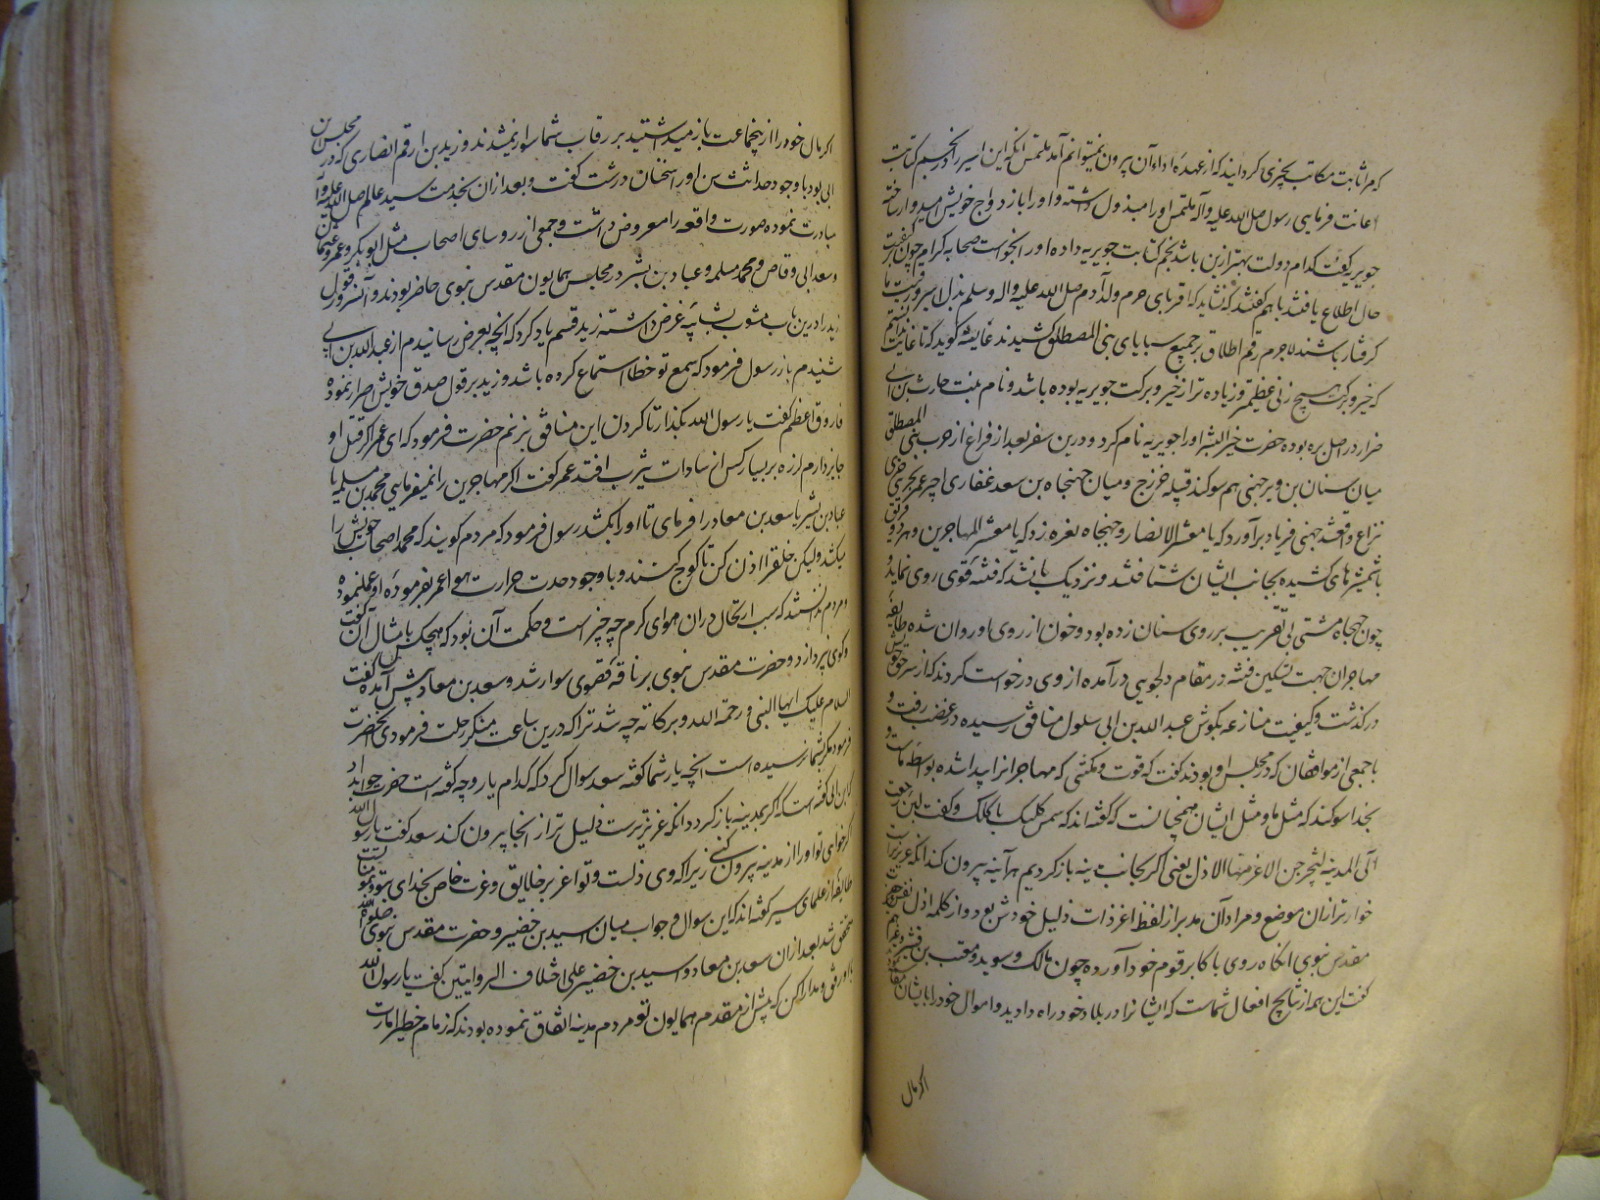 که مرا ثابت مکاتب بچیزی کردانید که از عهدهٔ اداء آن بیرون نمیتوانم آمد ملتمس آنکه این اسیر را در نجم کتابت
اعانت فرمایی رسول صلی الله علیه وآله ملتمس او را مبذول داشته و او را بازدواج خویش امیدوار ساخته
جویریه گفت کدام دولت بهتر ازین باشد نجم کتابت جویریه داده او را بخواست صحابه کرام چون بر کیفیت
حال اطلاع یافتند با هم گفتند که نشاید که اقربای حرم ولد آدم صلی الله علیه واله وسلم بذل اسیر و رقیت ما
گرفتار باشند لاجرم رقم اطلاق بر جمیع سبایای بنی المصطلق کشیدند عایشه گوید که تا غایت ندانستیم
که خیر و برکت هیچ زنی عظیمتر و زیاده تر از خیر و برکت جویریه بوده باشد و نام بنت حارث بن ابی
ضرار در اصل بره بوده حضرت خیر البشر او را جویریه نام کرد و درین سفر بعد از فراغ از حرب بنی المصطلق
میان سنان بن وبر جهنی هم سوکند قبیله خزرج و میان جهجاه بن سعد غفاری اجیر عمر بجری چیزی
نزاع واقع شد جهنی فریاد برآورد که یا معشر الانصار و جهجاه نعره زد که یا معشر المهاجرین و هر دو فریق
با شمشیرهای کشیده بجانب ایشان شتافتند و نزدیک باشد که فتنهٔ قوی روی نماید و
چون جهجاه مشتی بی تقریب بر روی سنان زده بود و خون از روی او روان شده طایفهٔ
مهاجران جهت تسکین فتنه در مقام دلجویی درآمده از وی درخواست کردند که از سر حق خویش
درگذشت و کیفیت منازعه بگوش عبد الله بن ابی سلول منافق رسیده در غضب رفت و
با جمعی از موافقان که در مجلس او بودند گفت که قوت و مکنتی که مهاجرانرا پیدا شده بواسطهٔ ماست و
بخدا سوکند که مثل ما و مثل ایشان همچنانست که گفته اند که سمن کلبک یاکلک و گفت لئن رجعت
الی المدینه لیخرجن الاعز منها الاذل یعنی اگر بجانب مدینه باز گردیم هرآینه بیرون کند آنکه عزیزترست
خوارتر ازان موضع و مراد آن مدبر از لفظ اعز ذات ذلیل خودش بود و از کلمه اذل نفس حضرت
مقدس نبوی آنکاه روی با کابر قوم خود آورده چون مالک و سوید و معتب بن قشیر و غیرهم
گفت این همه از نتایج افعال شماست که ایشانرا در بلاد خود راه دادید و اموال خود را با ایشان
اکر مال
اکر مال خود را ازینجماعت باز میداشتید بر رقاب شما سوار نمیشدند و زید بن ارقم انصاری که در مجلس ابن
ابی بود با وجود حداثت سن او را سخنان درشت گفت و بعد ازان بخدمت سید عالم صلی الله علیه وآله
مبادرت نموده صورت واقعه را معروض داشت و جمعی از روسای اصحاب مثل ابو بکر و عمر و عثمان
و سعد ابی وقاص و محمد مسلمه و عباد بن بشر در مجلس همایون مقدس نبوی حاضر بودند و آنسرور قول
زید را درین باب مشوب بشایبهٔ غرض داشته زید قسم یاد کرد که آنچه بعرض رسانیدم از عبد الله بن ابی
شنیدم باز رسول فرمود که سمع تو خطا استماع کرده باشد و زید بر قول صدق خویش اصرار نموده
فاروق اعظم گفت یا رسول الله بکذار تا کردن این منافق بزنم حضرت فرمود که ای عمر اگر قتل او
جایز دارم لرزه بر بسیار کس از سادات یثرب افتد عمر گفت اکر مهاجرین را نمیفرمایی محمد بن مسلمه یا
عباد بن بشر یا سعد بن معاذ را فرمای تا او را بکشد رسول فرمود که مردم گویند که محمد اصحاب خویش را
میکشد ولیکن خلقرا اذن کن تا کوچ کنند و با وجود حدت حرارت هوا عمر بفرمودهٔ او عمل نموده
و مردم ندانستند که سبب ارتحال دران هوای گرم چه چیز است و حکمت آن بود که هیچکس بامثال آن گفت
و گوی نپردازد و حضرت مقدس نبوی بر ناقهٔ قصوی سوار شد و سعد بن معاذ پیش آمده گفت
السلام علیک ایها النبی و رحمة الله وبرکاته چه شد ترا که درین ساعت منکر رحلت فرمودی آنحضرت
فرمود مکر بشما نرسیده است آنچه یار شما گفته سعد سوال کرد که کدام یار و چه گفته است حضرت جواب داد
که ابن ابی گفته است که اگر بمدینه باز کردد آنکه عزیزترست ذلیل تر از آنجا بیرون کند سعد گفت یا رسول الله
اگر خواهی تو او را از مدینه بیرون کنی زیرا که وی ذلست و تو اعز بر خلایق و عزت خاص بخدای
طایفهٔ از علمای سیر گفته اند که این سوال و جواب میان اسید بن حضیر و حضرت مقدس نبوی صلوة الله
متحقق شد بعد ازان سعد بن معاذ و اسید بن خضیر علی اختلاف الروایتین گفت یا رسول الله
با او رفق و مدارا کن که پیش از مقدم همایون تو مردم مدینه اتفاق نموده بودند که زمام خطیر امارت